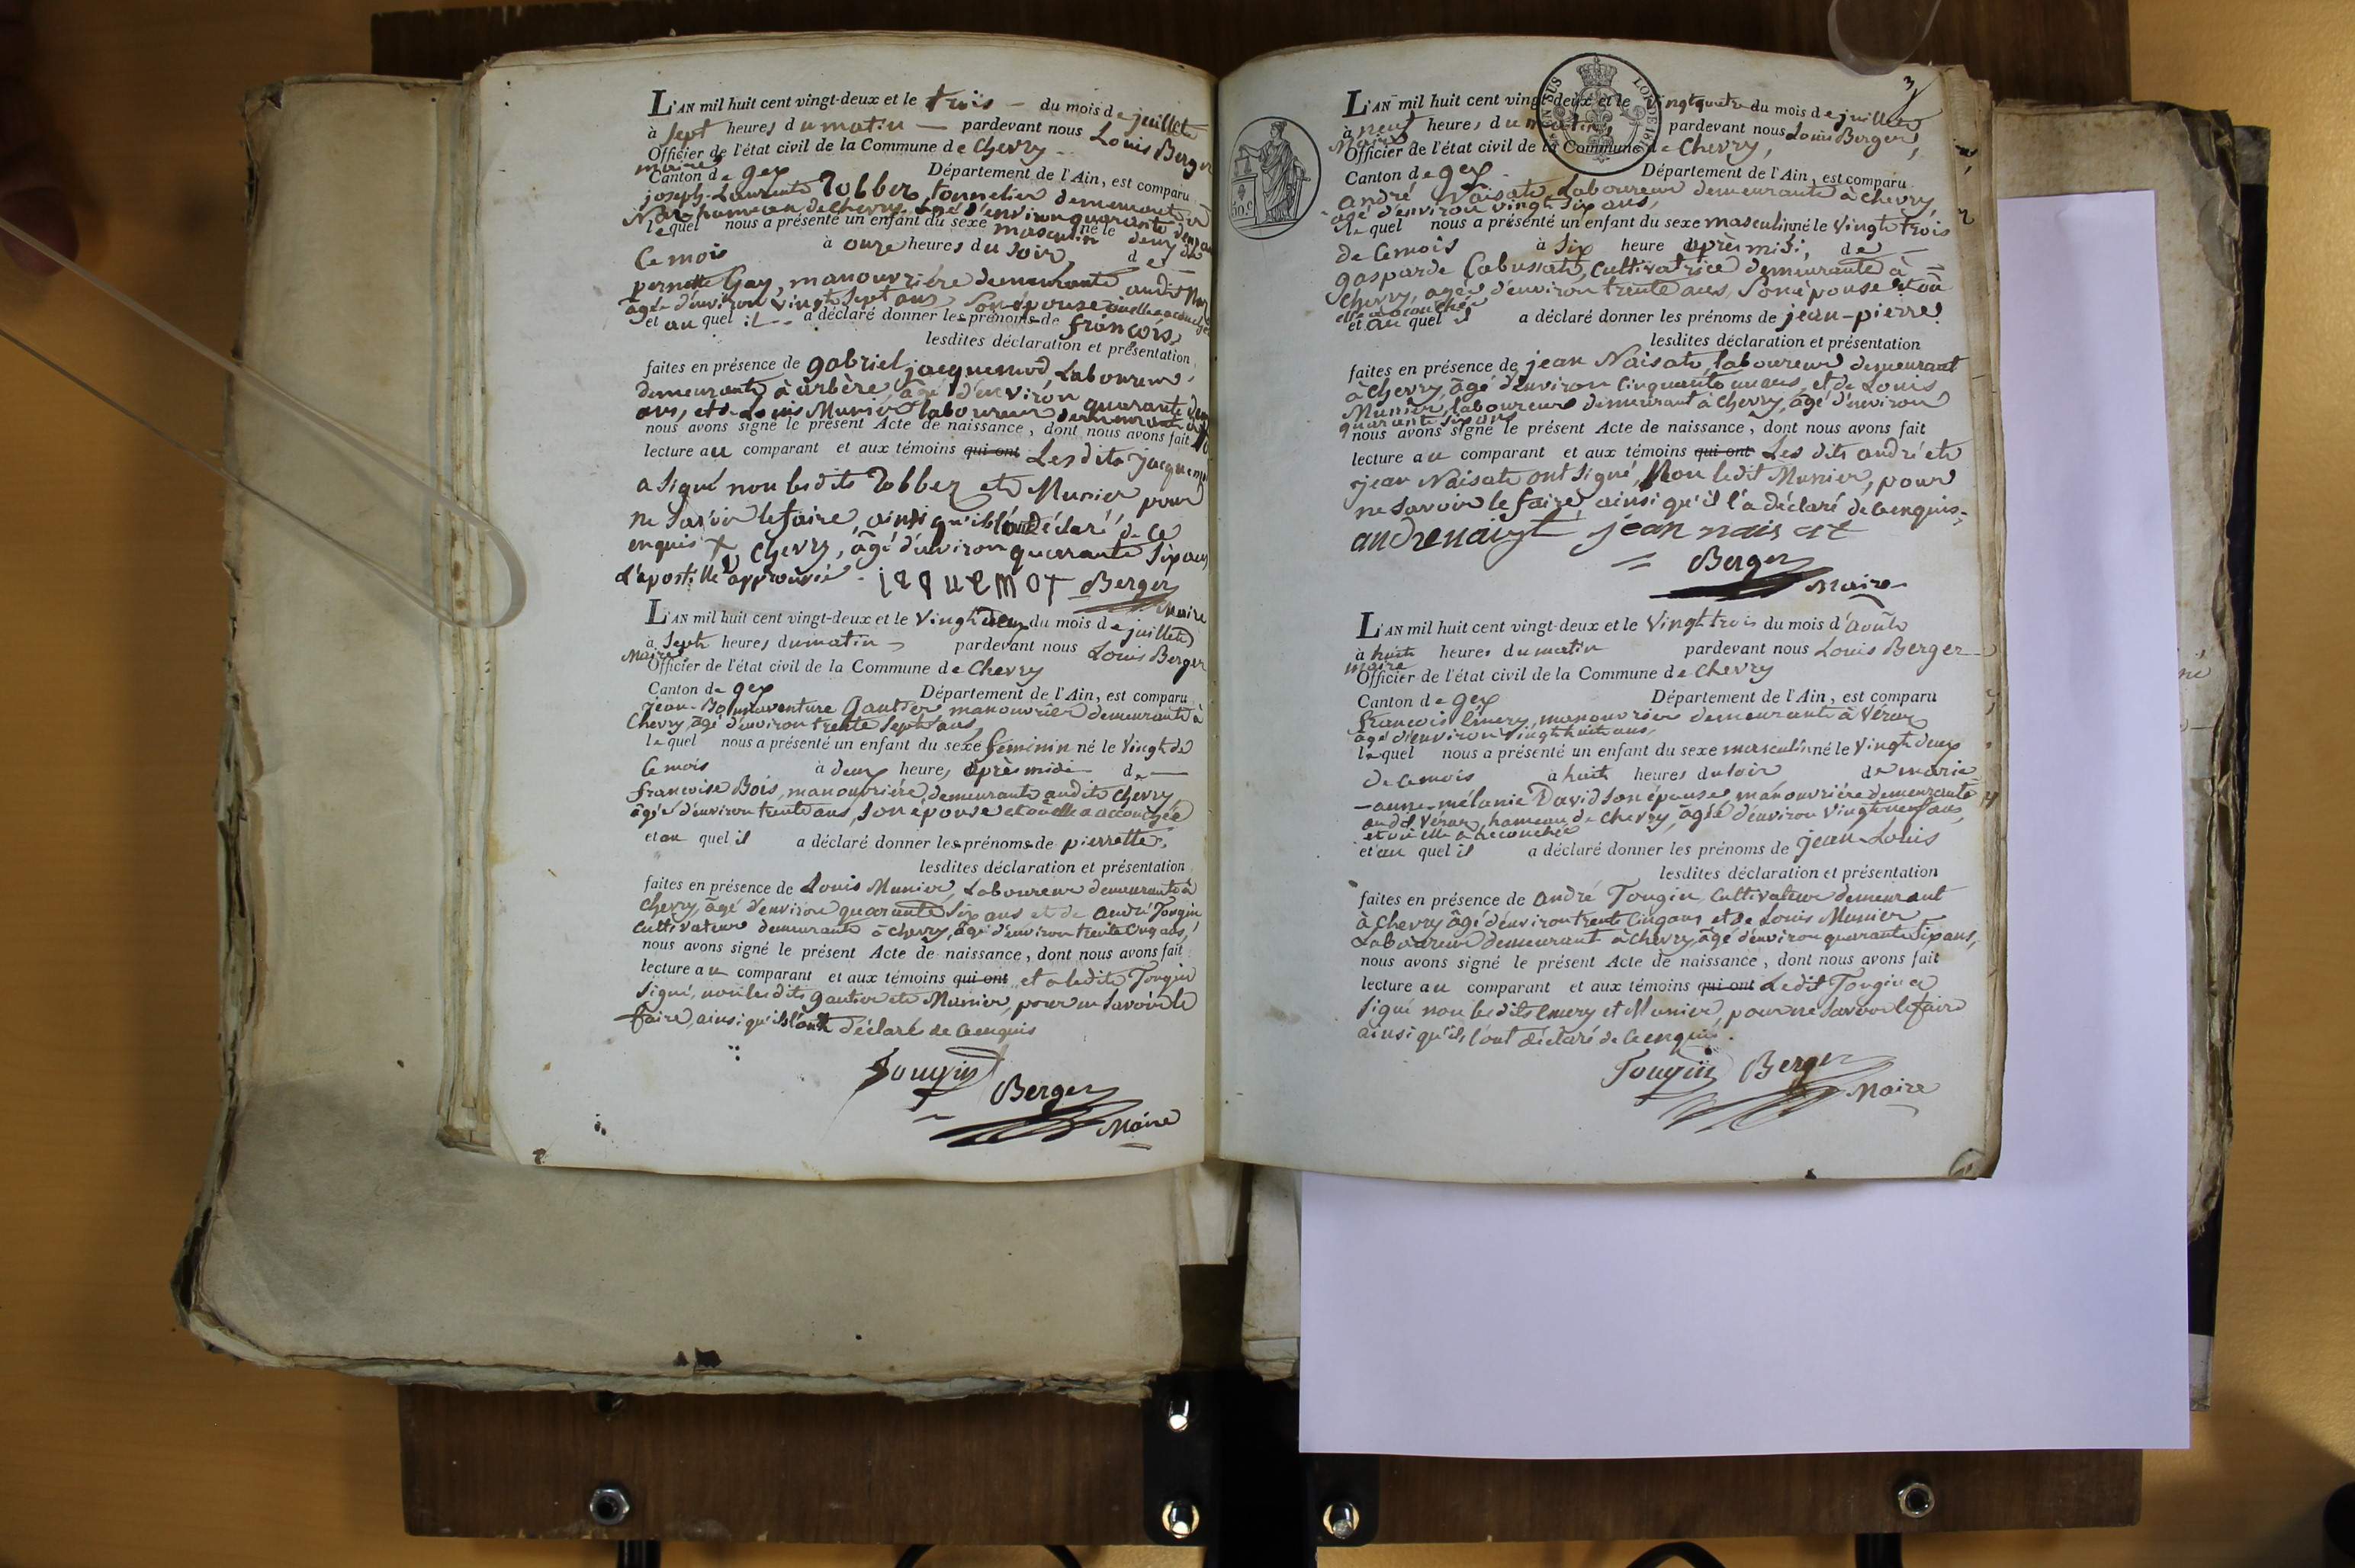 L'AN mil huit cent vingt-deux et le trois - du mois de juillet
à sept heures du matin - pardevant nous Louis Berger
maire
Officier de l'état civil de la Commune de Chevry -
Canton de gex Département de l'Ain, est comparu
joseph-Laurent tonnelier demeurant à
hameau de Chevry, âgé d'environ quarante deux ans
lequel nous a présenté un enfant du sexe masculin né le deux de
ce mois à onze heures du soir de -
pernette Gay, manouvrière demeurante audit
âgée d'environ vingt sept ans, son épouse
et au quel il - a déclaré donner les prénoms de françois,
lesdites déclaration et présentation
faites en présence de gabriel jacquemod, Laboureur,
demeurant à arbère, âgé d'environ quarante deux
ans, et de Louis Munier laboureur demeurant à
nous avons signé le présent Acte de naissance, dont nous avons fait
lecture au comparant et aux témoins qui ont Lesdits jacquemod
a signé non lesdits et Munier, pour
ne savoir le faire, ainsi qu'ils l'ont déclaré de ce
enquis + Chevry, âgé d'environ quarante six ans
l'apostille approuvée - jaquemot Berger
Maire
L'AN mil huit cent vingt-deux et le Vingt deux du mois de juillet
à Sept heures du matin - pardevant nous Louis Berger
Maire
Officier de l'état civil de la Commune de Chevry
Canton de gex Département de l'Ain, est comparu
jean-Bonnaventure Gautier manouvrier demeurant à
Chevry âgé d'environ trente sept ans,
lequel nous a présenté un enfant du sexe féminin né le vingt de
ce mois à deux heures après midi de -
françoise Bois, manouvrière demeurante audit Chevry
âgée d'environ trente ans, son épouse et où elle a accouchée
et au quel il a déclaré donner les prénoms de pierrette,
lesdites déclaration et présentation
faites en présence de Louis Munier, Laboureur demeurant à
Chevry, âgé d'environ quarante six ans et de André Tougin
Cultivateur demeurant à Chevry, âgé d'environ trente cinq ans,
nous avons signé le présent Acte de naissance, dont nous avons fait
lecture au comparant et aux témoins qui ont et a ledit Tougin
signé, non lesdits gautier et Munier, pour ne savoir le
faire, ainsi qu'ils l'ont déclaré de ce enquis
Tougin
Berger
Maire
3
L'AN mil huit cent vingt-deux et le vingtquatre du mois de juillet
à neuf heures du matin, pardevant nous Louis Berger,
Maire
Officier de l'état civil de la Commune de Chevry,
Canton de gex - Département de l'Ain, est comparu
andré Naisat, Laboureur demeurant à Chevry,
âgé d'environ vingt six ans,
lequel nous a présenté un enfant du sexe masculin né le Vingt trois
de ce mois à six heure après midi, de -
gasparde Cabussat, Cultivatrice demeurante à
Chevry, agée d'environ trente ans, son épouse et où
elle a accouchée
et au quel il a déclaré donner les prénoms de jean-pierre
lesdites déclaration et présentation
faites en présence de jean Naisat, laboureur demeurant
à Chevry, âgé d'environ Cinquante un ans, et de Louis
Munier, laboureur demeurant à Chevry, âgé d'environ
quarante six ans
nous avons signé le présent Acte de naissance, dont nous avons fait
lecture au comparant et aux témoins qui ont Les dits andré et
jean Naisat ont signé, Non ledit Munier, pour
ne savoir le faire, ainsi qu'il l'a déclaré de ce enquis.
jean
Berger
Maire
L'AN mil huit cent vingt-deux et le Vingt trois du mois d'août
à huit heures du matin pardevant nous Louis Berger
maire
Officier de l'état civil de la Commune de Chevry
Canton de gex Département de l'Ain, est comparu
françois Emery, manouvrier demeurant à Véraz
âgé d'environ vingt huit ans,
lequel nous a présenté un enfant du sexe masculin né le Vingt deux
de ce mois à huit heures du soir de marie
-anne-mélanie David son épouse manouvrière demeurante
audit Véraz, hameau de Chevry, âgée d'environ vingt neuf ans,
et où elle a accouchée
et au quel il a déclaré donner les prénoms de jean-Louis
lesdites déclaration et présentation
faites en présence de andré Tougin, Cultivateur demeurant
à Chevry âgé d'environ trente cinq ans et de Louis Munier
Laboureur demeurant à Chevry, âgé d'environ quarante six ans,
nous avons signé le présent Acte de naissance, dont nous avons fait
lecture au comparant et aux témoins qui ont Ledit Tougin a
signé non lesdits Emery et Munier, pour ne savoir le faire
ainsi qu'ils l'ont déclaré de ce enquis.
Tougin Berger
Maire